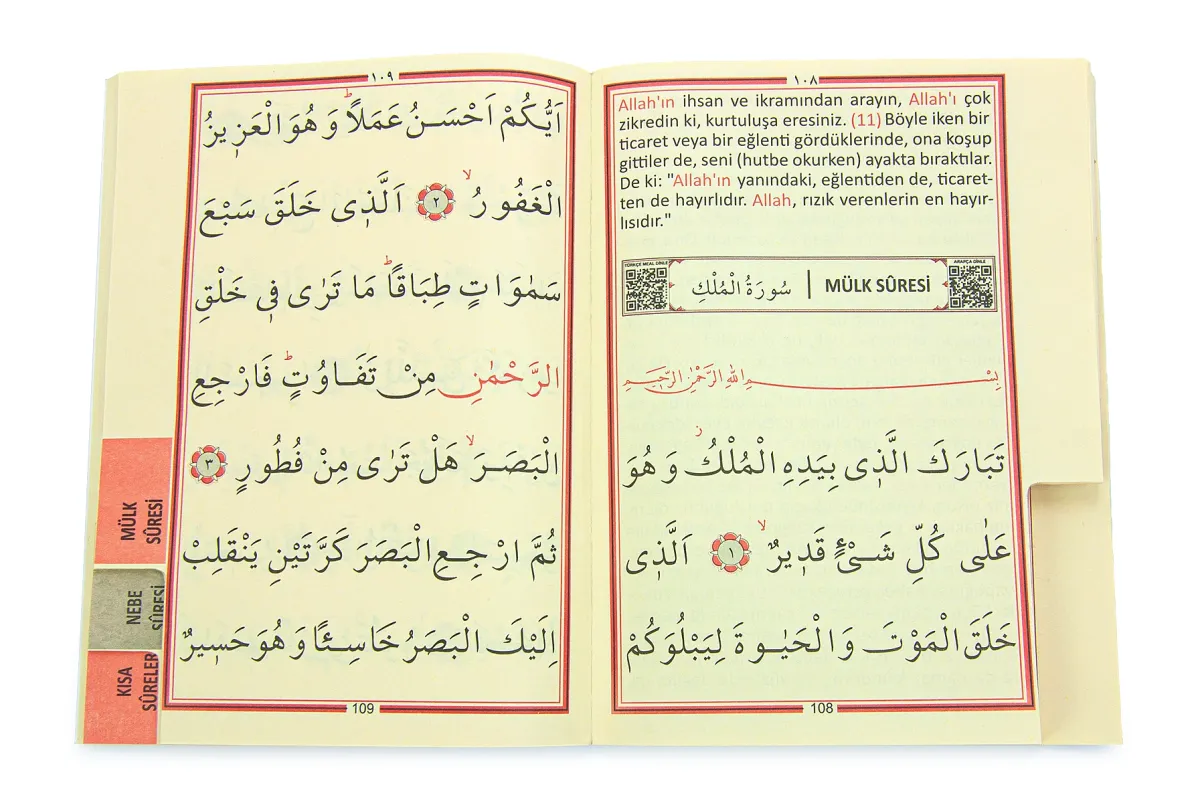 ١٠٨
Allah'ın ihsan ve ikramından arayın, Allah'ı çok
zikredin ki, kurtuluşa eresiniz. (11) Böyle iken bir
ticaret veya bir eğlenti gördüklerinde, ona koşup
gittiler de, seni (hutbe okurken) ayakta bıraktılar.
De ki: "Allah'ın yanındaki, eğlentiden de, ticaret-
ten de hayırlıdır. Allah, rızık verenlerin en hayır-
lısıdır."
TÜRKÇE MEAL DİNLE
ARAPÇA DİNLE
سُورَةُ الْمُلْكِ | MÜLK SÛRESİ
بِسْمِ اللهِ الرَّحْمٰنِ الرَّحِيمِ
تَبَارَكَ الَّذ۪ى بِيَدِهِ الْمُلْكُ ز وَهُوَ
عَلٰى كُلِّ شَىْءٍ قَد۪يرٌ ﴿١﴾ اَلَّذ۪ى
خَلَقَ الْمَوْتَ وَالْحَيٰوةَ لِيَبْلُوَكُمْ
108
١٠٩
اَيُّكُمْ اَحْسَنُ عَمَلاً ط وَهُوَ الْعَز۪يزُ
الْغَفُورُ ﴿٢﴾ اَلَّذ۪ى خَلَقَ سَبْعَ
سَمٰوَاتٍ طِبَاقًا ط مَا تَرٰى ف۪ى خَلْقِ
الرَّحْمٰنِ مِنْ تَفَاوُتٍ ط فَارْجِعِ
الْبَصَرَ هَلْ تَرٰى مِنْ فُطُورٍ ﴿٣﴾
ثُمَّ ارْجِعِ الْبَصَرَ كَرَّتَيْنِ يَنْقَلِبْ
اِلَيْكَ الْبَصَرُ خَاسِئًا وَهُوَ حَس۪يرٌ
109
MÜLK
SÛRESİ
NEBE
SÛRESİ
KISA
SÛRELER